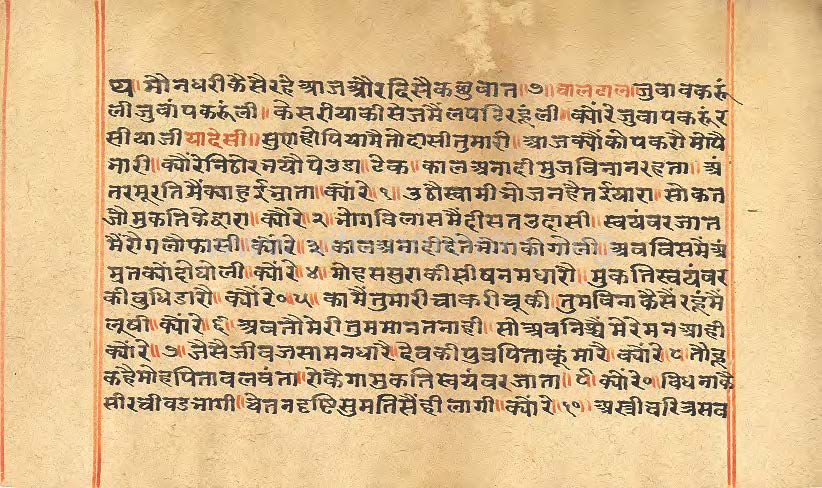 ष्प॥मौनधरीकैसैरहैआजऔरदिसैकबुवात॥७॥वालढाल॥जुवावकरुं
लीजुवांपकरुंली॥केसरीयाकीसेजमैंलपटिरहुंली॥क्यौंरेजुवापकरुंर
सीयाजी॥यादेसी॥सुणहोपियामैतोदासीतुमारी॥आजक्यौंकोपकरौमोपै
नारी॥क्यौंरेनिठोरभयौपेउडा॥टेक॥कालअनादीमुजविनानरहता॥अं
तरमूरतिमैं॥क्यौंरे॥१॥उठौस्वामीभोजनहैतईयारा॥सोकत
जौमुकतिकेद्वारा॥क्यौंरे॥२॥भोगविलासमैंदीसतउदासी॥स्वयंवरजात
मैंरौगलीफासी॥क्यौंरे॥३॥कालअनादीदेतेभोगकीगोली॥अवविसमैंअं
मृतक्योंहीघोली॥क्यौंरे॥४॥मोहससुराकीसीषनमधारौ॥मुकतिस्वयंवर
कीबुधिडारौ॥क्यौंरे०॥५॥कामैंतुमारीचाकरीचूकी॥तुमविनाकैसैंरहुंमैं
लूषी॥क्यौंरे॥६॥अवतौमेरीतुममानतनाही॥सोअवनिश्चैंमेरेमनआही
क्यौंरे॥७॥जैसैजीवजसामनधारै॥देवकीपुत्रपिताकूंमारै॥क्यौंरे॥८॥तौहू
कहैमोहपितावलवंता॥रोकैगामुकतिस्वयंवरजाता॥९॥क्यौंरे०॥विधनाकै
सीरचीवडभागी॥चेतनदृष्टिसुमतिसैंहीलागी॥क्यौंरे॥१०॥अस्त्रीचरित्रसव